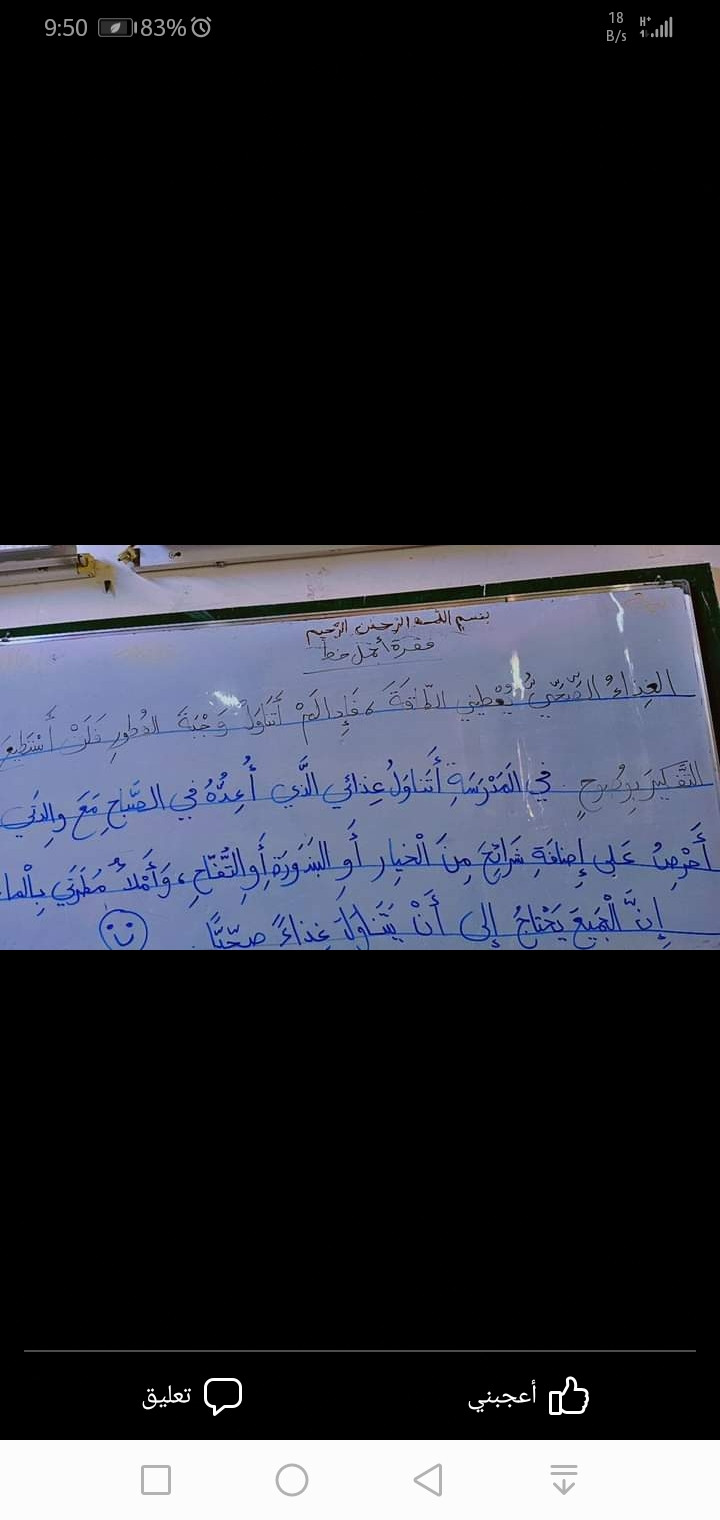 9:50 83% 18 B/s H+
بسم الله الرحمن الرحيم
فقرة أجمل خط
الغِذاءُ الصِّحِّيُّ يُعْطيني الطّاقَةَ ، فَإِذا لَمْ أَتَناوَلْ وَجْبَةَ الفُطورِ فَلَنْ أَسْتَطيعَ
التَّفْكيرَ بِوُضوحٍ في الْمَدْرَسَةِ أَتَناوَلُ غِذائي الَّذي أُعِدُّهُ في الصَّباحِ مَعَ والِدَتي
أَحْرِصُ عَلى إِضافَةِ شَرائِحَ مِنَ الْخِيارِ أَوِ البَنَدورَةِ أَوِ التُّفّاحِ ، وَأَمْلَأُ مَطَرَتي بِالْماءِ
إِنَّ الْجَميعَ يَحْتاجُ إِلى أَنْ يَتَناوَلَ غِذاءً صِحِّيًّا .
أعجبني تعليق